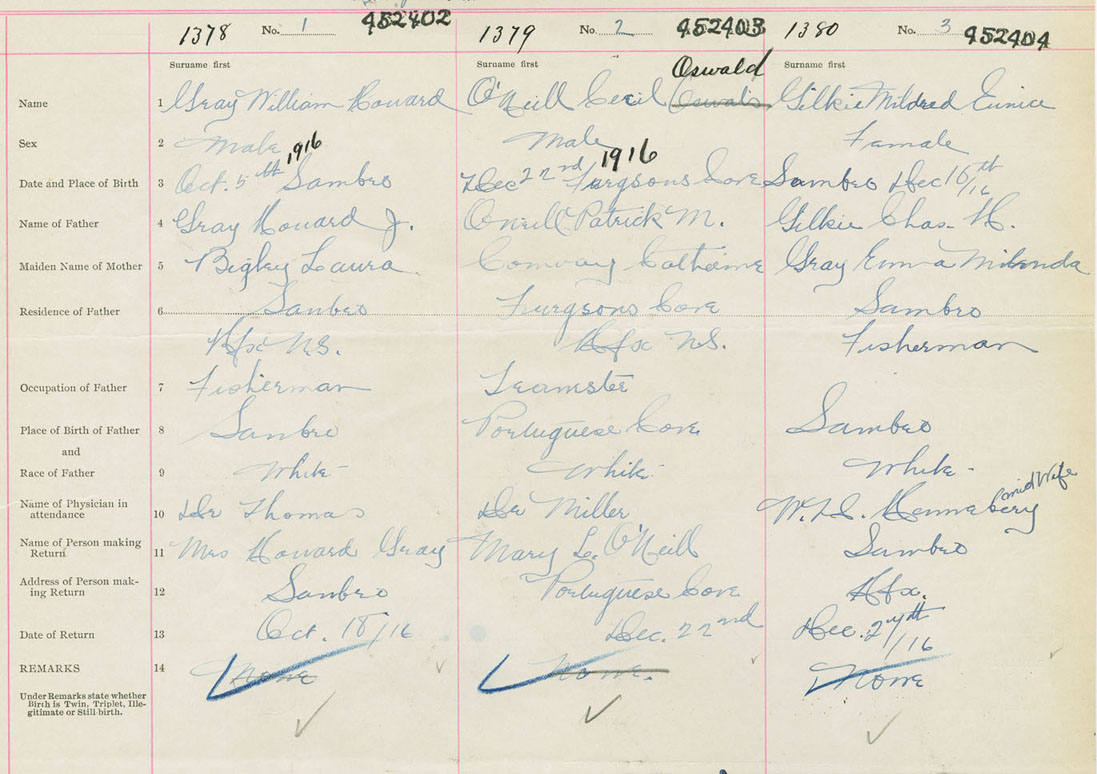 1378 No. 1 452402 1379 No. 2 452403 1380 No. 3 452404
Surname first Surname first Oswald Surname first
Name 1 Gray William Howard O'Neill Cecil Oswald Gilkie Mildred Eunice
Sex 2 Male Male Female
Date and Place of Birth 3 Oct. 5th 1916 Sambro Dec 22nd 1916 Furgsons Cove Sambro Dec 16th/16
Name of Father 4 Gray Howard J. O'Neill Patrick M. Gilkie Chas. H.
Maiden Name of Mother 5 Laura Conway Catherine Gray Emma
Residence of Father 6 Sambro Furgsons Cove Sambro
Hfx N.S. Hfx N.S. Fisherman
Occupation of Father 7 Fisherman Teamster
Place of Birth of Father 8 Sambro Portuguese Cove Sambro
and
Race of Father 9 White White White
Name of Physician in attendance 10 Dr Thomas Dr Miller Hennebery midwife
Name of Person making Return 11 Mrs Howard Gray Mary L. O'Neill Sambro
Address of Person making Return 12 Sambro Portuguese Cove Hfx.
Date of Return 13 Oct. 18/16 Dec. 22nd Dec. 27th/16
REMARKS 14 None None. None
Under Remarks state whether
Birth is Twin, Triplet, Ille-
gitimate or Still birth.